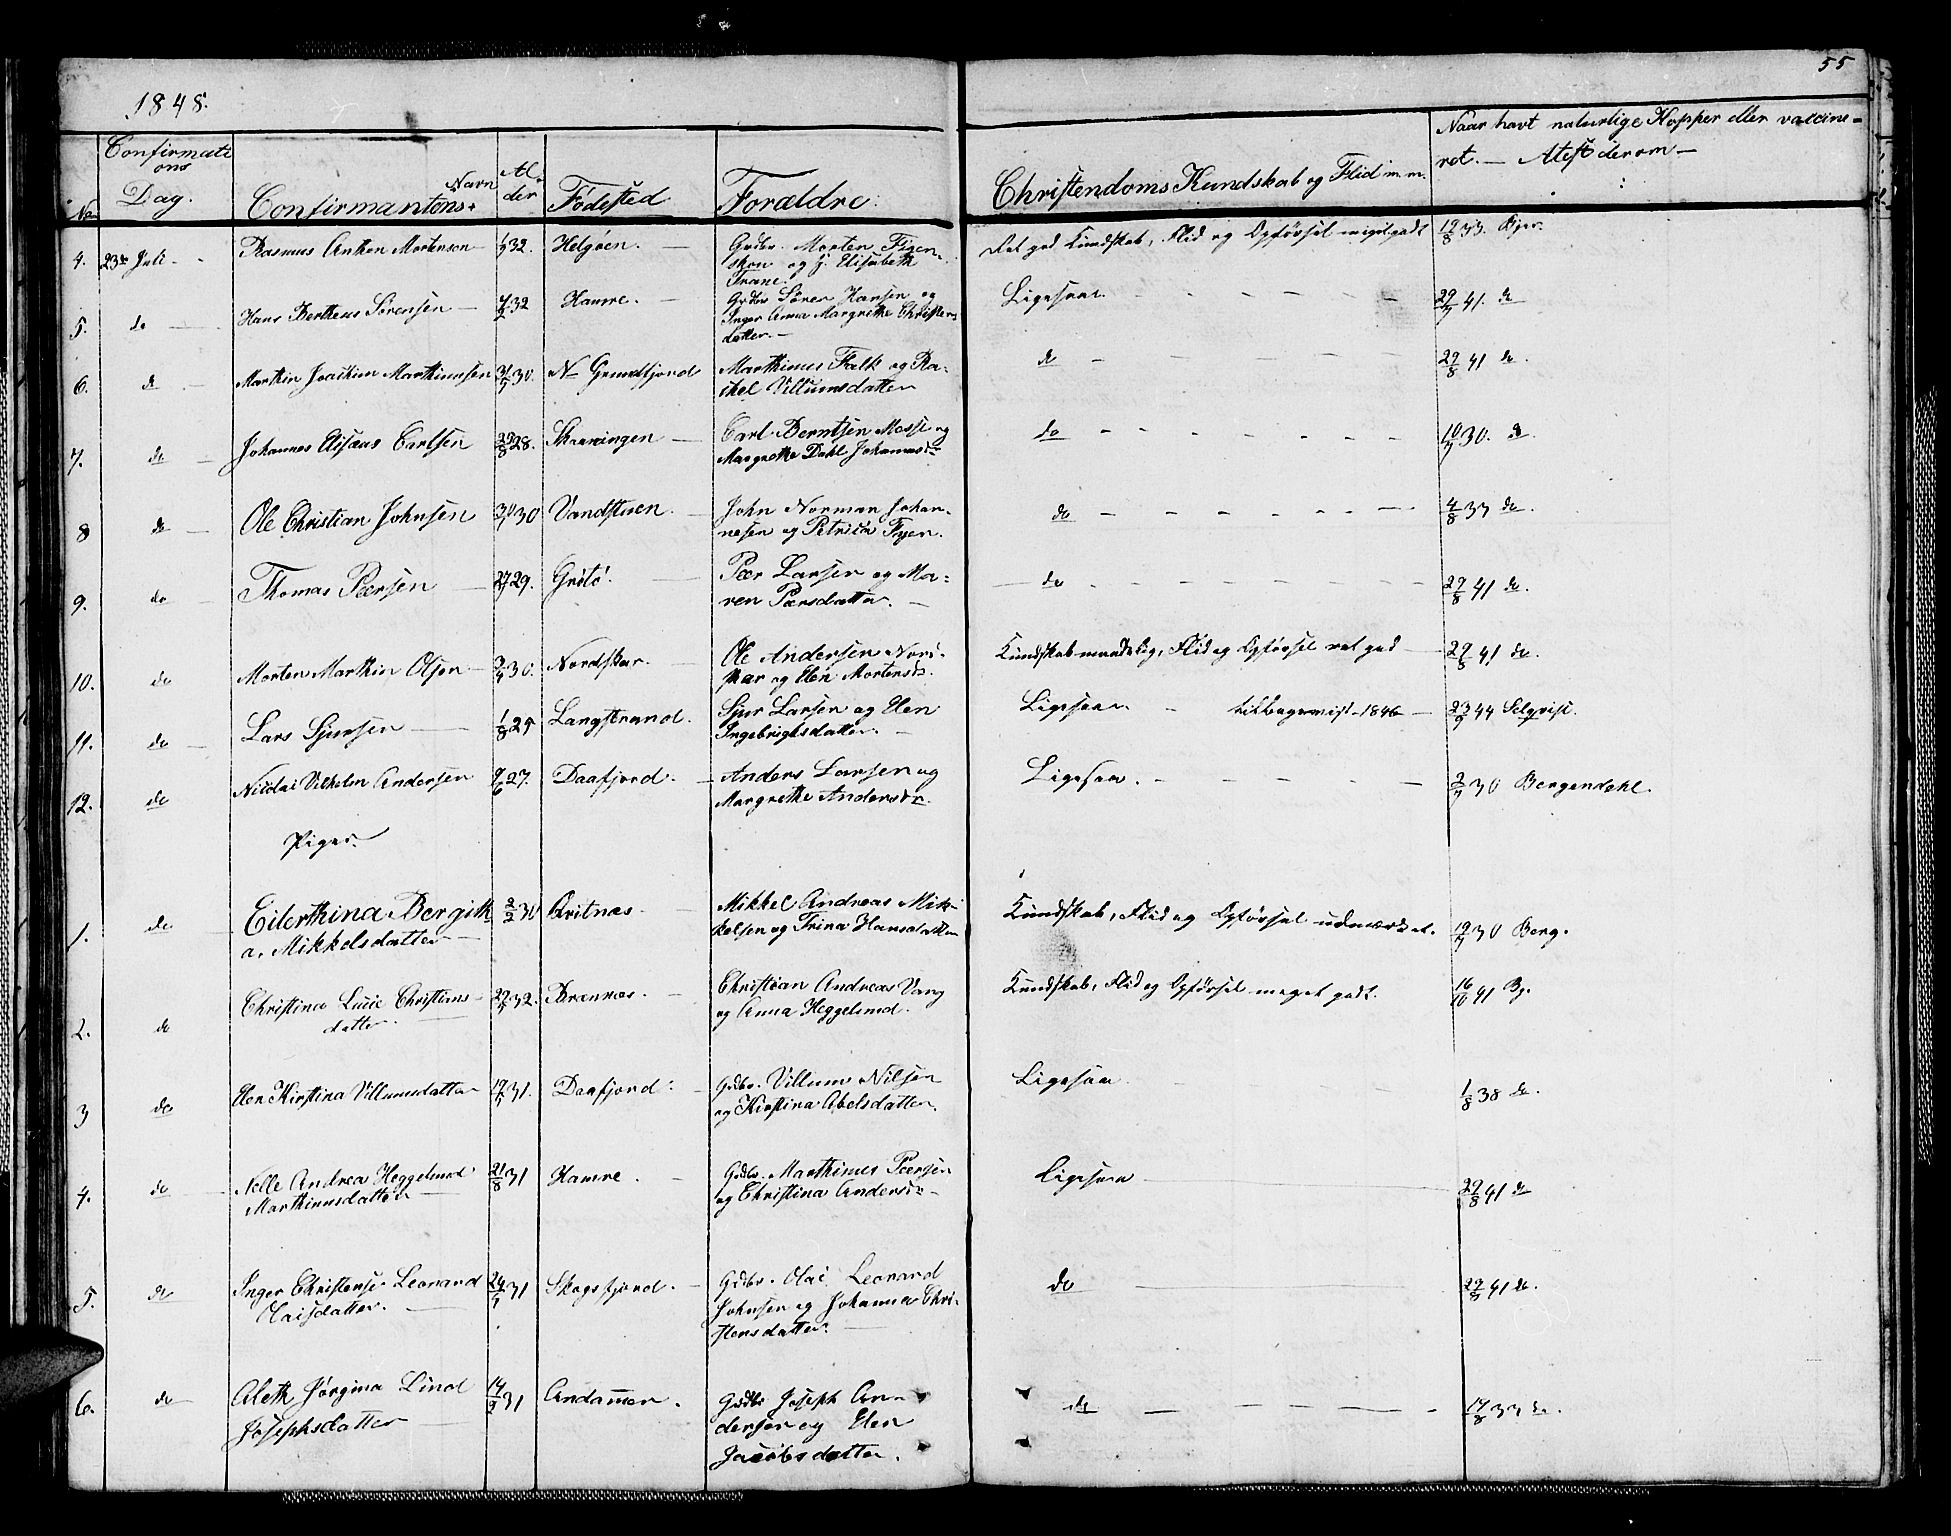 55
1848.
No Confirmati ons Dag. Confirmantens Navn Al- der Fødested Forældre.
Christendoms Kundskab og Flid m. m.
Naar havt naturlige Kopper eller vaccine-
ret. — Atest derom —
4. 23de Juli Rasmus Anthon Mortensen 32. Helgøen. Grdbr. Morten Figen-
skou og H. Elisabeth
Trane.
Ret god Kundskab, Flid og Opførsel meget godt 19/8 33. Bjer.
5. do Hans Bertheus Sørensen 32 Hamre. Grdbr Sören Hansen og
Inger Anna Margrethe Christens
datter.
Ligesaa 29/7 41. do
6. do Marthin Joachim Marthinusen 30. N Grundfjord Marthinus Falk og Ra-
kel Villumsdatter
do 29/8 41 do.
7. do Johannes Elisæus Carlsen 28. Skaaningen Carl Berntsen Mosse og
Margrethe Dahl Johannesdr
do 10/7 30. do.
8 do Ole Christian Johnsen 30 Vandstuen John Norman Johan-
nesen og Petrica Fyen.
do 4/8 33 do.
9. do Thomas Pærsen 29. Grötö. Pær Larsen og Ma-
ren Pærsdatter.
do 29/8 41 do.
10. do Morten Marthin Olsen 30. Nordskar. Ole Andersen Nord-
skar og Elen Mortensdr.
Kundskab maadelig, Flid og Opførsel ret god 29/8 41 do.
11. do Lars Sjursen 1/8 25 Langstrand. Sjur Larsen og Elen
Ingebrigtsdatter.
Ligesaa tilbageviist 1846 23/9 44 Selqvist.
12. do Nicolai Vilhelm Andersen 9/6 27. Daafjord. Anders Larsen og
Margrethe Andersdr.
Ligesaa. 2/7 30 Bergendahl.
Piger.
1. do Eilerthina Bergith
a. Mikkelsdatter 2/2 30 Qvitnæs. Mikkel Andreas Mik-
kelsen og Trina Hansdatter
Kundskab, Flid og Opførsel udmærket. 19/7 30 Berg.
2. do Christina Lucie Christians-
datter. 32. Brennæs. Christian Andreas Vang
og Anna Heggelund.
Kundskab, Flid og Opførsel meget godt. 16/10 41 Bj.
3 do Elen Kirstina Villumsdatter 31. Daafjord. Grdbr. Villum Nilsen
og Kirstina Abelsdatter.
Ligesaa 1/8 38 do.
4. do Nelle Andrea Heggelund
Marthinusdatter 21/8 31 Hamre. Grdbr. Marthinus Pærsen
og Christina Andersdr
Ligesaa 29/8 41 do
5. do Inger Christense Leonard
Olaisdatter. 31 Skogsfjord. Grdbr. Olai Leonard
Johnsen og Johanna Chri-
stensdatter.
do 29/8 41 do.
6. do Aleth Jørgina Lind
Josephsdatter 14/2 31 Andammen. Grdbr Joseph An-
dersen og Elen
Jacobsdatter.
do 14/8 33 do.